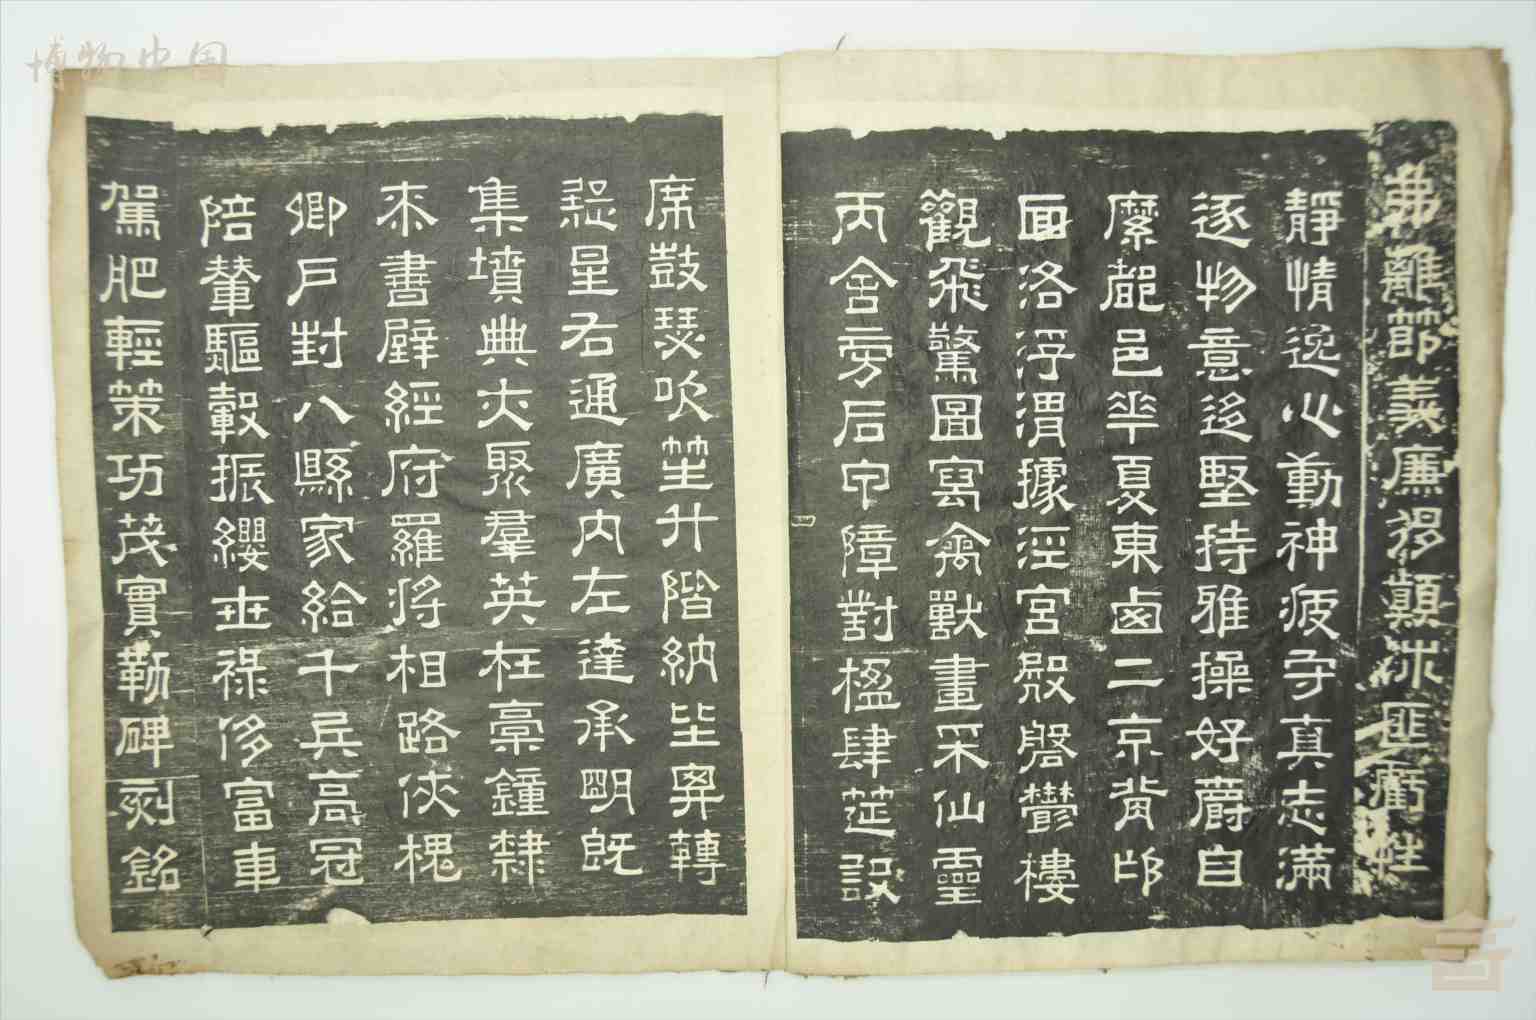 博物中国
弗離節義廉退顛沛匪虧性
靜情逸心動神疲守真志滿
逐物意移堅持雅操好爵自
縻都邑華夏東西二京背邙
面洛浮渭據涇宮殿盤鬱樓
觀飛驚圖寫禽獸畫采仙靈
丙舍旁启甲障對楹肆筵設
席鼓瑟吹笙升階納陛弁轉
疑星右通廣内左達承明既
集墳典亦聚羣英杜稾鐘隸
桼書壁經府羅將相路俠槐
卿戶封八縣家給千兵高冠
陪輦驅轂振纓世祿侈富車
駕肥輕策功茂實勒碑刻銘